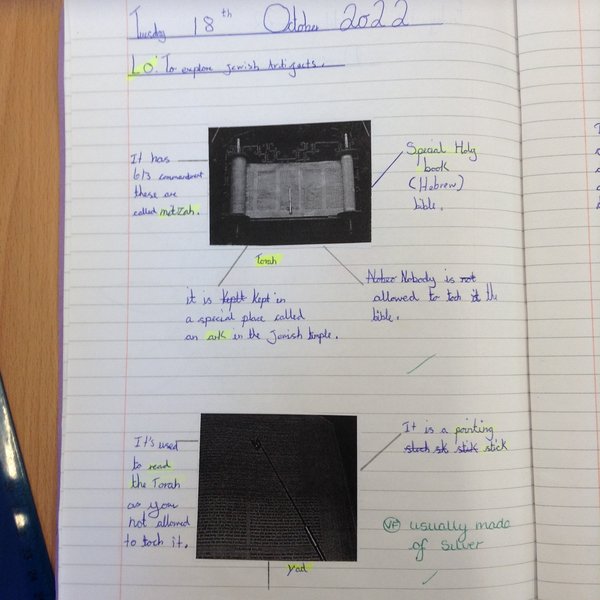 Tuesday 18th October 2022
LO: To explore Jewish Artifacts.
It has
613 commandment
these are
called mitzah.
Special Holy
book
(Hebrew)
bible.
Torah
it is Keptt Kept in
a special place called
an ark in the Jewish temple.
Nobody is not
allowed to toch it the
bible.
It's used
to read
the Torah
as you
not allowed
to toch it.
It is a pointing
stick
VF usually made
of silver
Yad